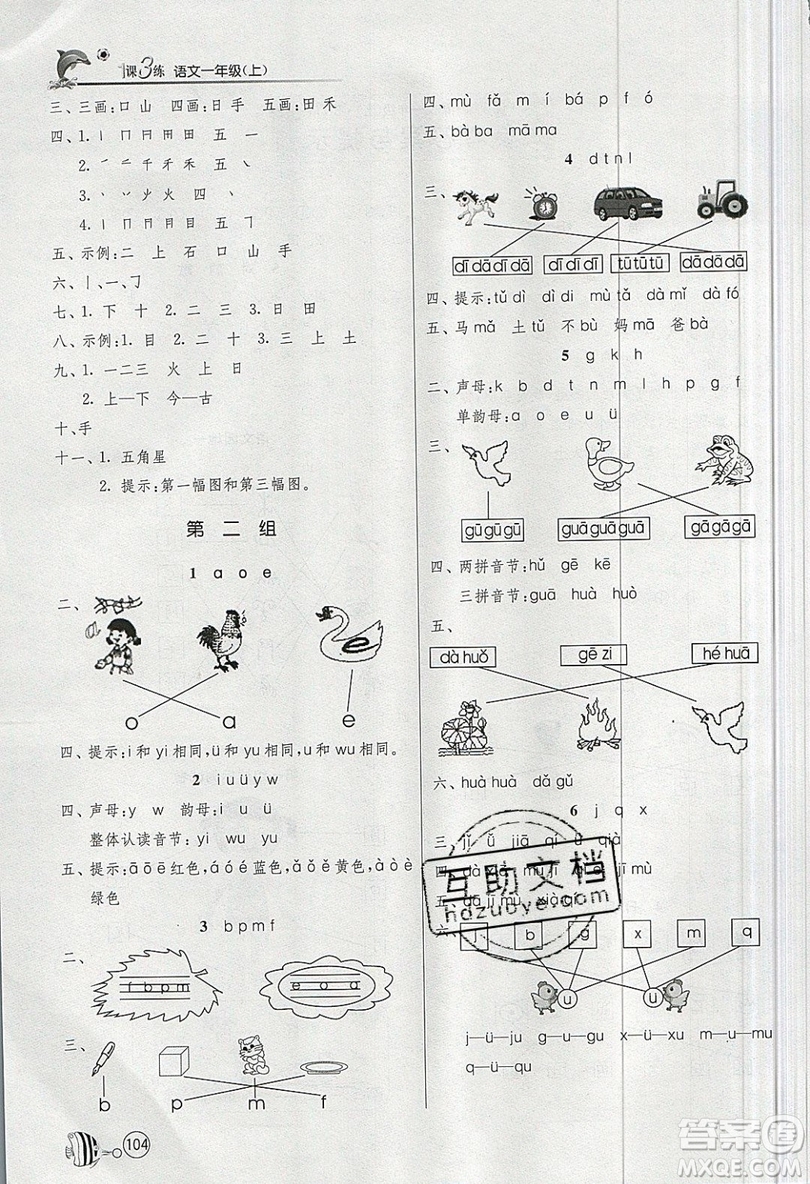 1课3练 语文一年级(上)
三、三画:口 山 四画:日 手 五画:田 禾
四、1. 丨 冂 冂 田 田 五 一
2. 一 二 千 手 禾 五 丿
3. 丶 丷 少 火 四 丶
4. 丨 冂 月 用 田 五 丁
五、示例:二 上 石 口 山 手
六、丨、一、㇆
七、1. 下 十 2. 二 三 3. 日 田
八、示例:1. 目 2. 二 十 3. 三 上 土
九、1. 一二三 火 上 日
2. 上—下 今—古
十、手
十一、1. 五角星
2. 提示:第一幅图和第三幅图。
第 二 组
1 a o e
二、
o a e
四、提示:i和yi相同,ü和yu相同,u和wu相同。
2 i u ü y w
四、声母:y w 韵母:i u ü
整体认读音节:yi wu yu
五、提示:ā ō ē 红色,á ó é 蓝色,ǎ ǒ ě 黄色,à ò è
绿色
3 b p m f
二、
f b p m e o a
三、
b p m f
104
四、mù fǎ mí bá pf fó
五、bà ba mā ma
4 d t n l
三、
dī dā dī dā dī dī dī tū tū tū dā dā dā
四、提示:tǔ dì dì di mù tǎ dà mǐ dà fó
五、马 mǎ 土 tǔ 不 bù 妈 mā 爸 bà
5 g k h
二、声母:k b d t n m l h p g f
单韵母:a o e u ü
三、
gū gū gū guā guā guā gā gā gā
四、两拼音节:hǔ gē kē
三拼音节:guā huà huò
五、
dà huǒ gē zi hé huā
六、huà huà dǎ gǔ
6 j q x
三、jī ǔ jiā qí ū qià
四、dà xǐ jī mù
五、dā jī mù xià qí
六、
j b g x m q
u ü
j—ü—ju g—u—gu x—ü—xu m—u—mu
q—ü—qu
互助文档
hdzuoye.com
答案圈
MXQE.COM